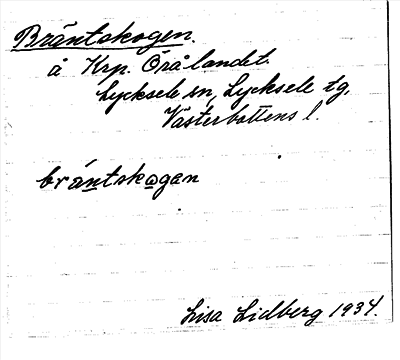 Bräntskogen.
å Krp. Örålandet.
Lycksele sn, Lycksele tg.
Västerbottens l.
bräntskogan
Lisa Lidberg 1934.